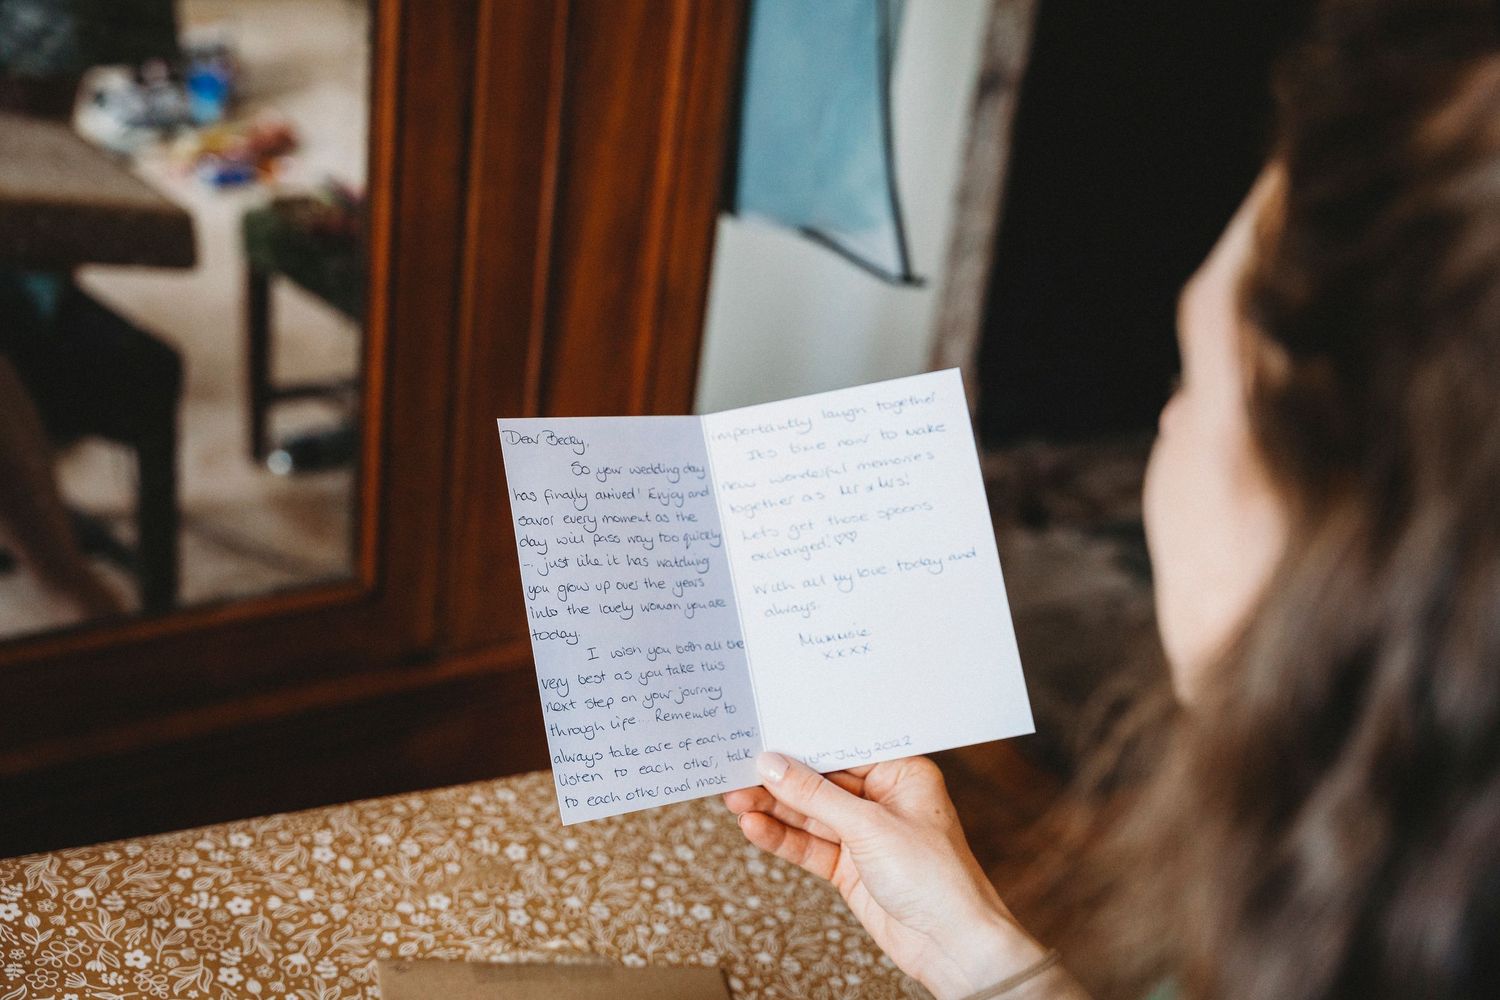 Dear Becky,
So your wedding day
has finally arrived! Enjoy and
savor every moment as the
day will pass way too quickly
... just like it has watching
you grow up over the years
into the lovely woman you are
today.
I wish you both all the
very best as you take this
next step on your journey
through life... Remember to
always take care of each other,
listen to each other, talk
to each other and most
importantly laugh together.
It's time now to make
new wonderful memories
together as Mr & Mrs!
Lets get those spoons
exchanged! ♡♡
With all my love today and
always.
Mummsie
xxxx
July 2022